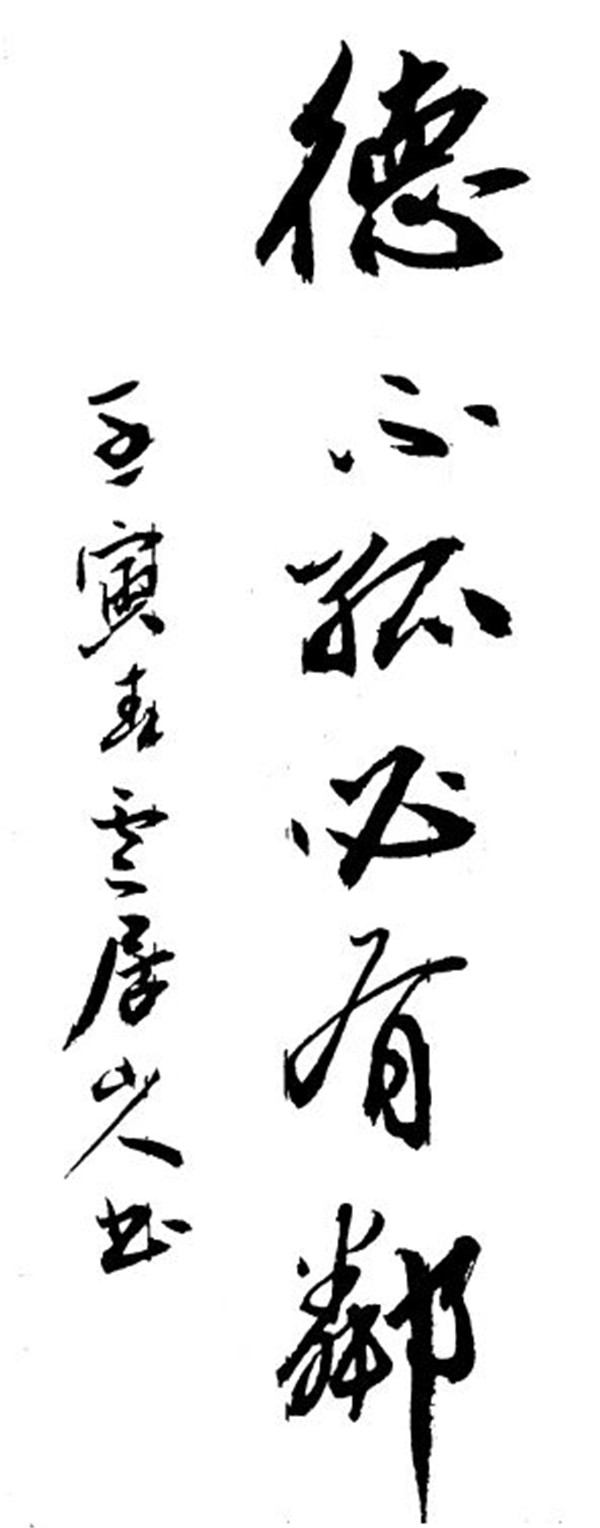 德不孤必有鄰
壬寅春雲居山人书